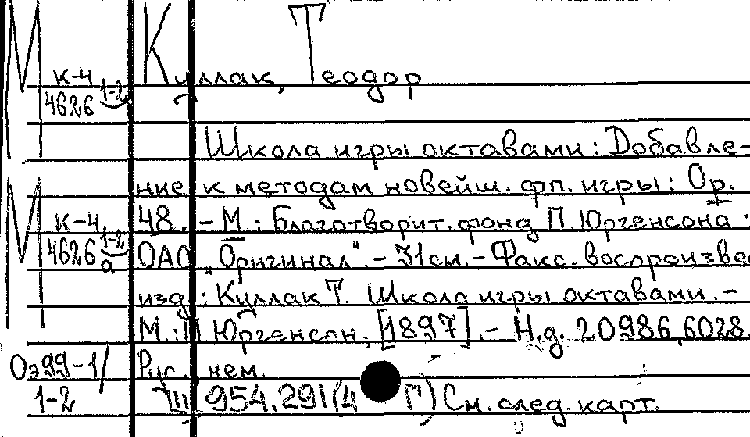 М Куллак, Теодор
К-4
4626 1-2
Школа игры октавами: Добавле-
ние к методам новейш. фп. игры: Ор.
М К-4 48. – М.: Благотворит. фонд П. Юргенсона:
4626 1-2 а ОАО „Оригинал“. – 31 см. – Факс. воспроизвед.
изд.: Куллак Т. Школа игры октавами. –
М.: П. Юргенсон, [1897]. – Н.д. 20986, 6028.
Оэ99-1/ Рус., нем.
1-2 Ш 954.291(4 Г) См. след. карт.